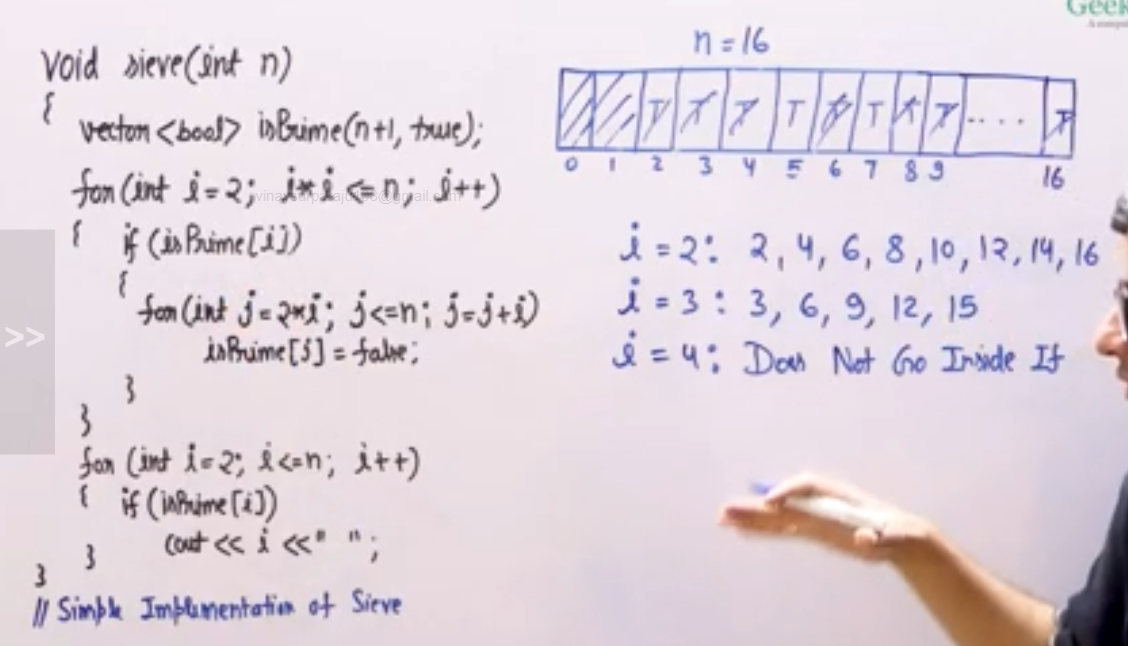 Geek
void sieve(int n)
{
vector<bool> isPrime(n+1, true);
for(int i=2; i*i <=n; i++)
{ if (isPrime[i])
{
for(int j=2*i; j<=n; j=j+i)
isPrime[j] = false;
}
}
for (int i=2; i<=n; i++)
{ if (isPrime[i])
cout << i <<" ";
}
}
// Simple Implementation of Sieve
n = 16
T T T T T T
0 1 2 3 4 5 6 7 8 9 .... 16
i = 2: 2, 4, 6, 8, 10, 12, 14, 16
i = 3: 3, 6, 9, 12, 15
i = 4: Does Not Go Inside If
>>